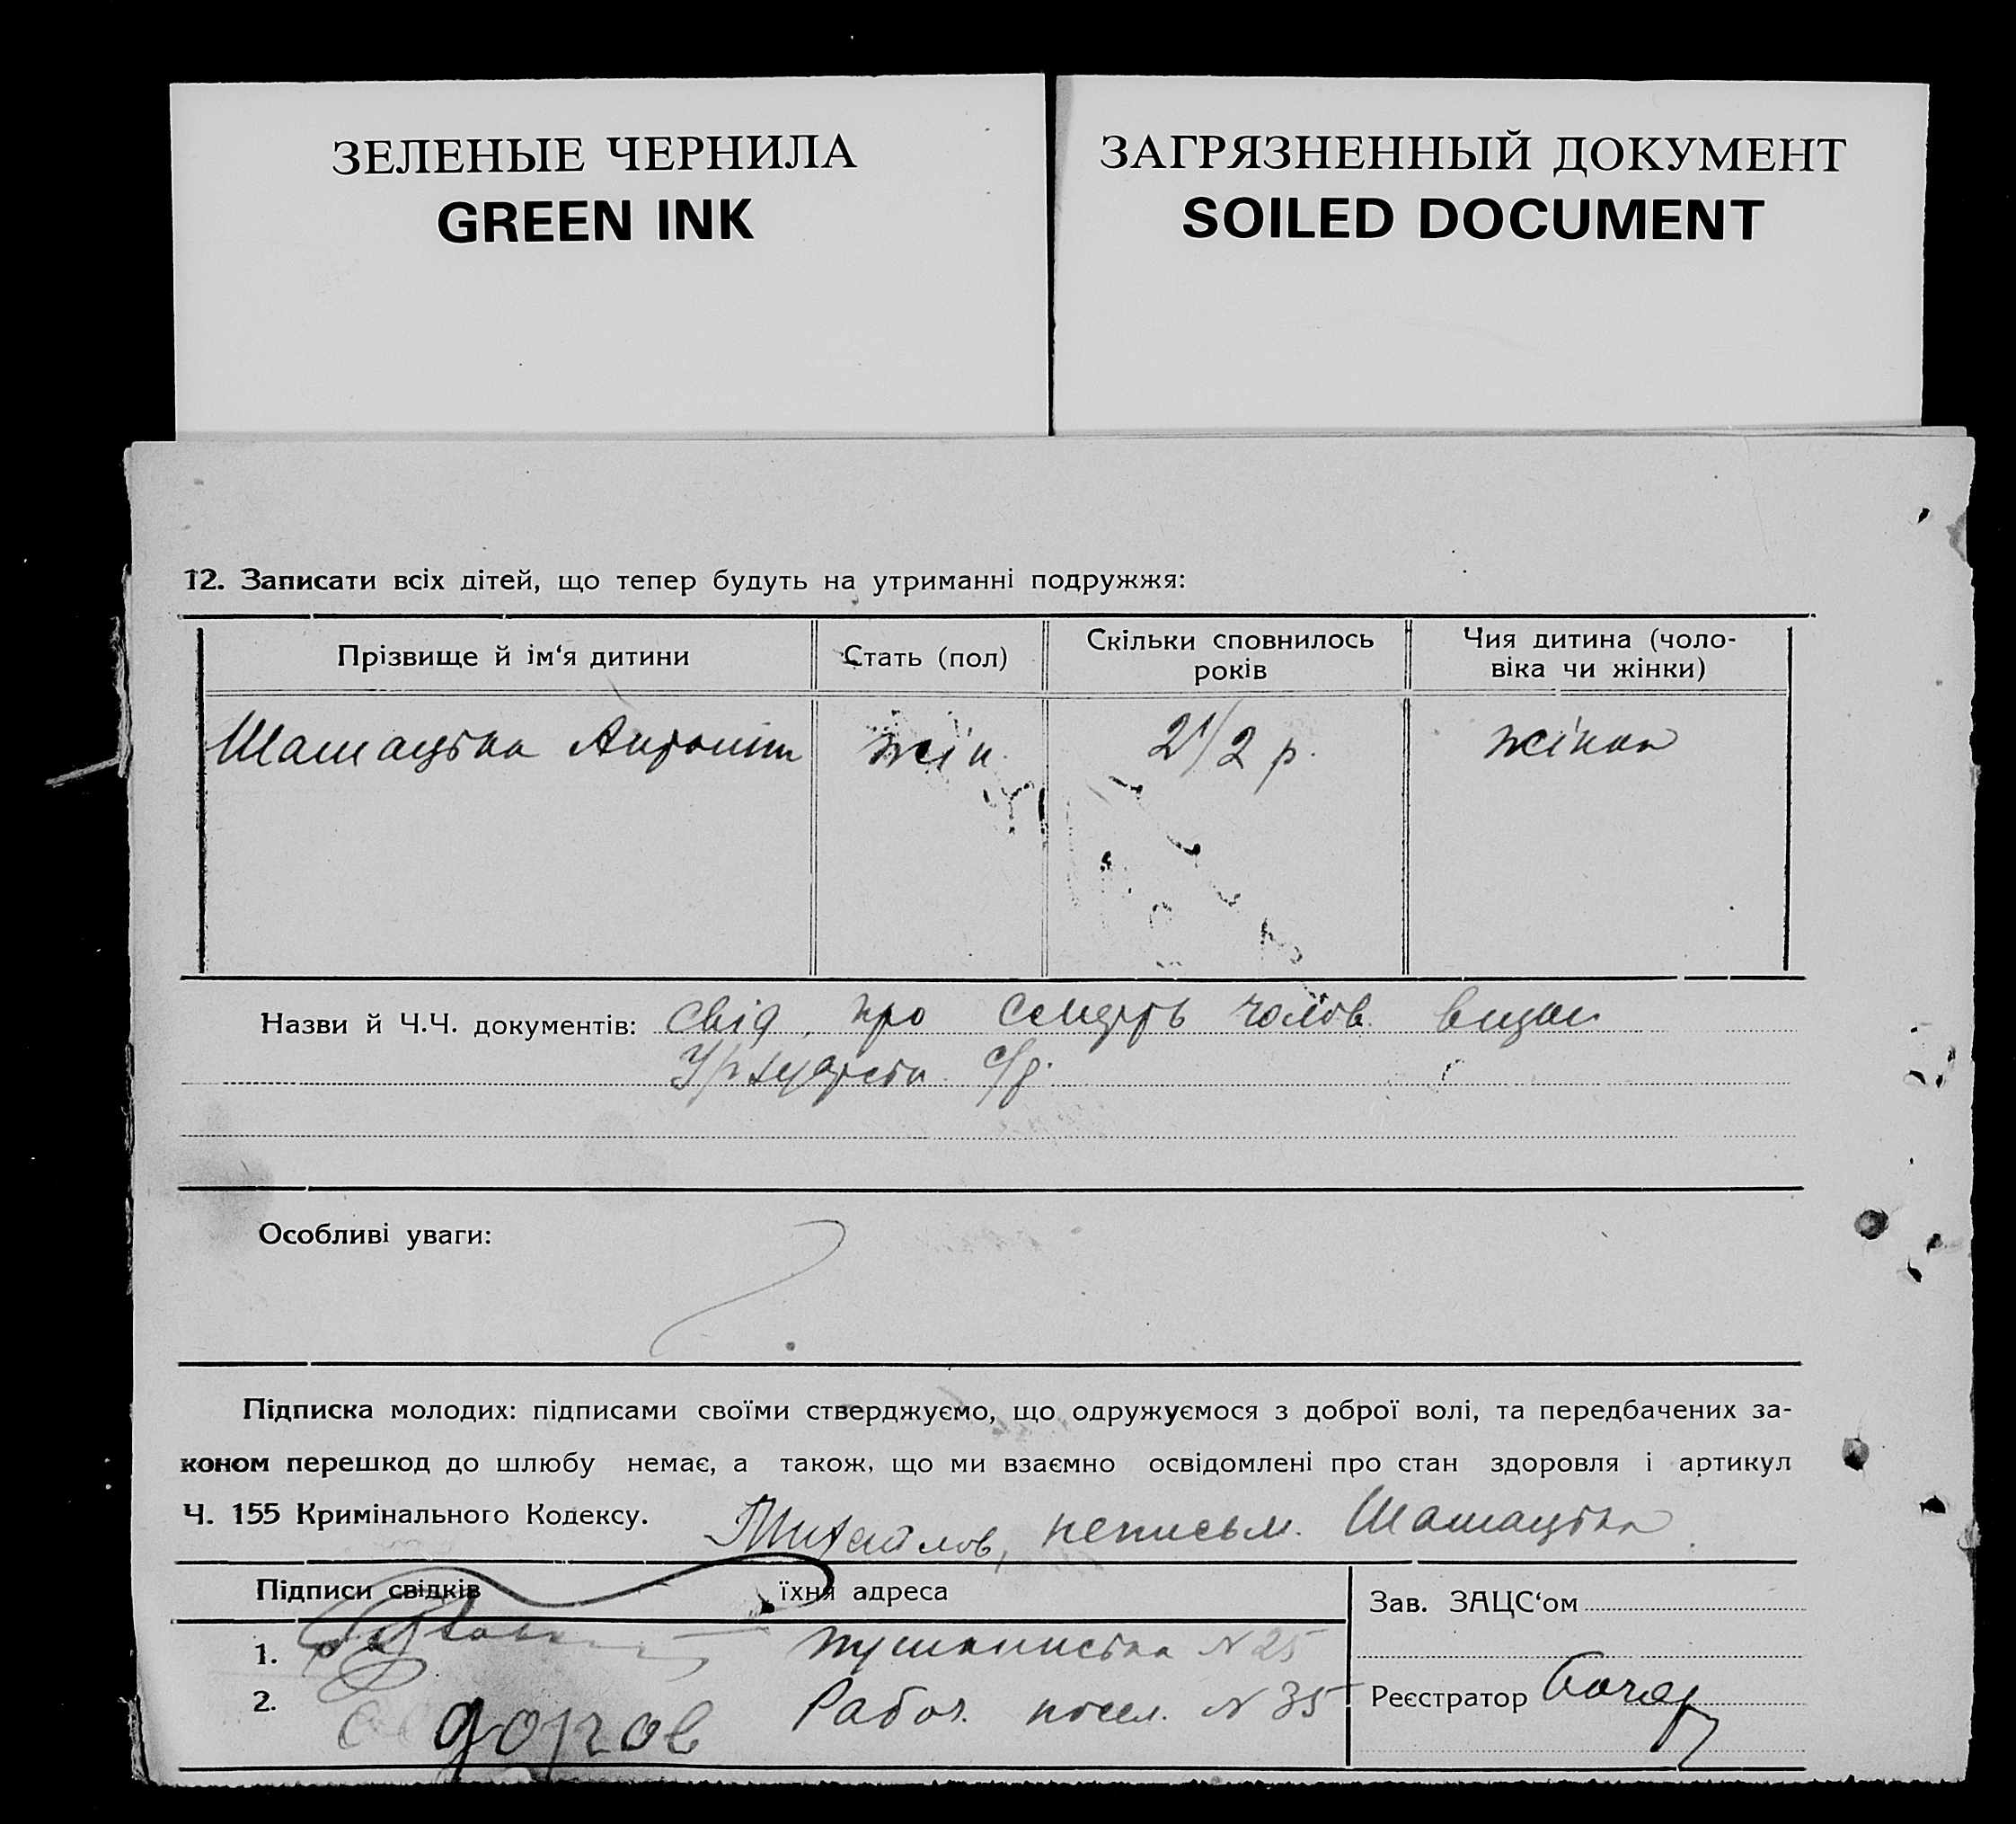 ЗЕЛЕНЫЕ ЧЕРНИЛА
GREEN INK
ЗАГРЯЗНЕННЫЙ ДОКУМЕНТ
SOILED DOCUMENT
12. Записати всіх дітей, що тепер будуть на утриманні подружжя:
Прізвище й ім‘я дитини
Стать (пол)
Скільки сповнилось
років
Чия дитина (чоло-
віка чи жінки)
Шашацька
жін.
2 1/2 р.
жінки
Назви й Ч.Ч. документів: свід. про смерть чолов. видан
с/р.
Особливі уваги:
Підписка молодих: підписами своїми стверджуємо, що одружуємося з доброї волі, та передбачених за-
коном перешкод до шлюбу немає, а також, що ми взаємно освідомлені про стан здоровля і артикул
Ч. 155 Кримінального Кодексу. Михайлов, неписьм. Шашацька
Підписи свідків
їхня адреса
Зав. ЗАЦС‘ом
1.
N 25
2.
Рабоч. посел. N 35
Реєстратор